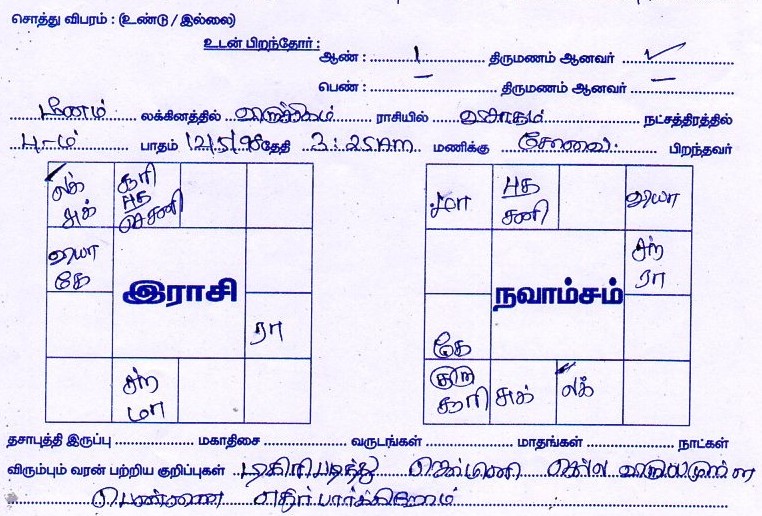 சொத்து விபரம் : (உண்டு / இல்லை)
உடன் பிறந்தோர் :
ஆண் : 1 திருமணம் ஆனவர் ✓
பெண் : – திருமணம் ஆனவர் –
மீனம் லக்கினத்தில் விருச்சிகம் ராசியில் விசாகம் நட்சத்திரத்தில்
4-ம் பாதம் 12/5/98 தேதி 3:25 AM மணிக்கு கோவை பிறந்தவர்
லக் சூரி
சுக் புத சனி
வியா
கே
இராசி
ரா
சந்
மா
மா புத வியா
சனி
சந்
ரா
நவாம்சம்
கே
குரு
சூரி சுக் லக்
தசாபுத்தி இருப்பு மகாதிசை வருடங்கள் மாதங்கள் நாட்கள்
விரும்பும் வரன் பற்றிய குறிப்புகள்
பெண்ணை எதிர்பார்க்கிறோம்